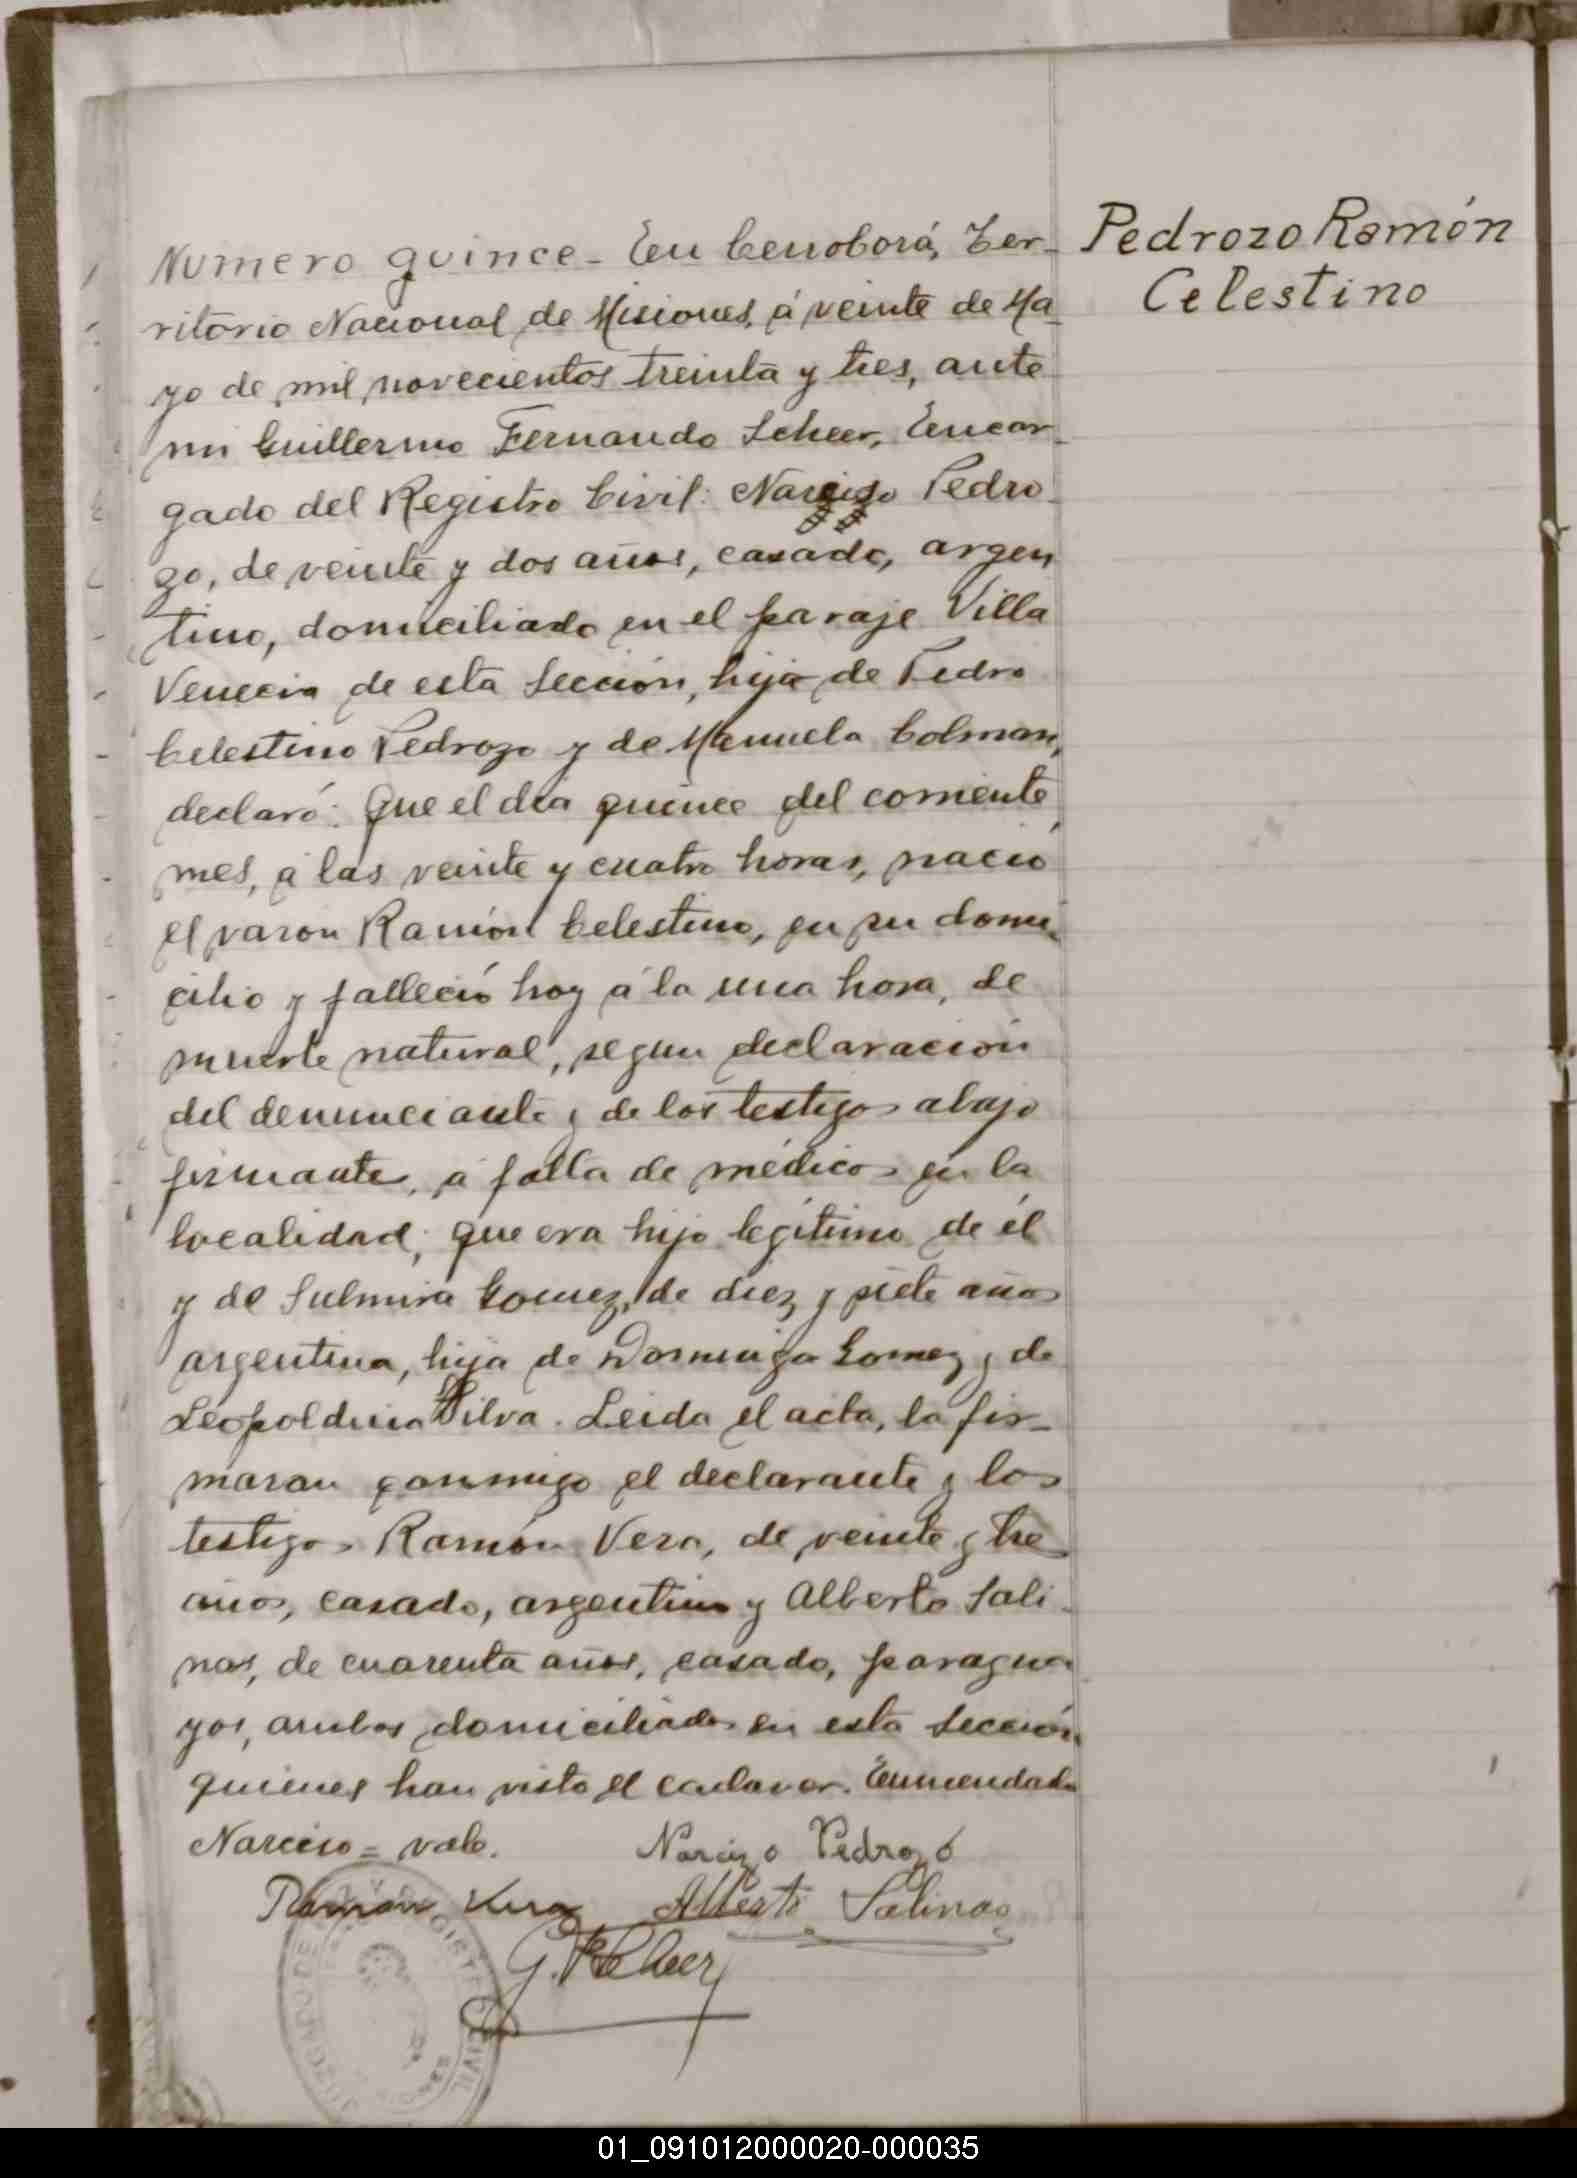 Pedrozo Ramón
Celestino
Numero quince - En Cerro Corá, Ter-
ritorio Nacional de Misiones, á veinte de Ma-
yo de mil novecientos treinta y tres, ante
mi Guillermo Fernando Scheer, Encar-
gado del Registro Civil: Narciso Pedro-
zo, de veinte y dos años, casado, argen
tino, domiciliado en el paraje Villa
Venecia de esta Sección, hijo de Pedro
Celestino Pedrozo y de Manuela Colman,
declaró: Que el dia quince del corriente
mes, á las veinte y cuatro horas, nació
el varon Ramón Celestino, en su domi-
cilio y falleció hoy á la una hora, de
muerte natural, segun declaración
del denunciante y de los testigos abajo
firmantes, á falta de médicos en la
localidad; que era hijo legítimo de él
y de Sulmira Gomez, de diez y siete años
argentina, hija de Domingo Gomez y de
Leopoldina Silva. Leida el acta, la fir-
maran conmigo el declarante y los
testigos Ramón Vera, de veinte y tres
años, casado, argentino y Alberto Sali-
nas, de cuarenta años, casado, paragua
yos, ambos domiciliados en esta Sección
quienes han visto el cadaver. Enmendado
Narciso = vale. Narcizo Pedrozo
Ramón Vera Alberto Salinas
G. F. Scheer
JUZGADO DE REGISTRO CIVIL
01_091012000020-000035